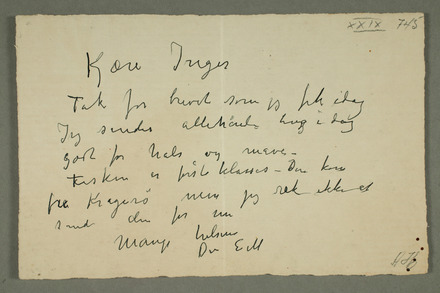 XXIX 745
Kjære Inger
Tak for brevet som jeg fik idag
Jeg sender allehånde ting i dag
godt for hals og mave –
Fisken er første klasses – Den kom
fra Kragerø men jeg rak ikke at
sende den før nu
Mange hilsen
Din Edv